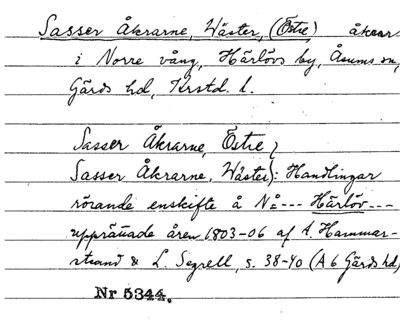 Sasser Åkrarne, Wäster, (Östre) åkrar
i Norre vång, Härlövs by, Åsums sn,
Gärds hd, Krstd. l.
Sasser Åkrarne, Östre }
Sasser Åkrarne, Wäster}: Handlingar
rörande enskifte å No --- Härlöv ---
upprättade åren 1803-06 af A. Hammar-
strand & L. Segrell, s. 38-40 (A 6 Gärds hd)
Nr 5344.